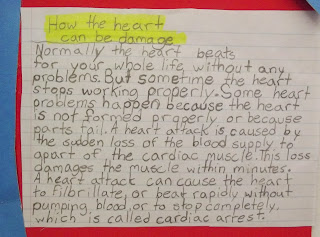 How the heart
can be damage
Normally the heart beats
for your whole life, without any
problems. But sometime the heart
stops working properly. Some heart
problems happen because the heart
is not formed properly or because
parts fail. A heart attack is caused by
the sudden loss of the blood supply to
apart of the cardiac muscle. This loss
damages the muscle within minutes.
A heart attack can cause the heart
to filbrillate, or beat rapidly without
pumping blood, or to stop completely,
which is called cardiac arrest.